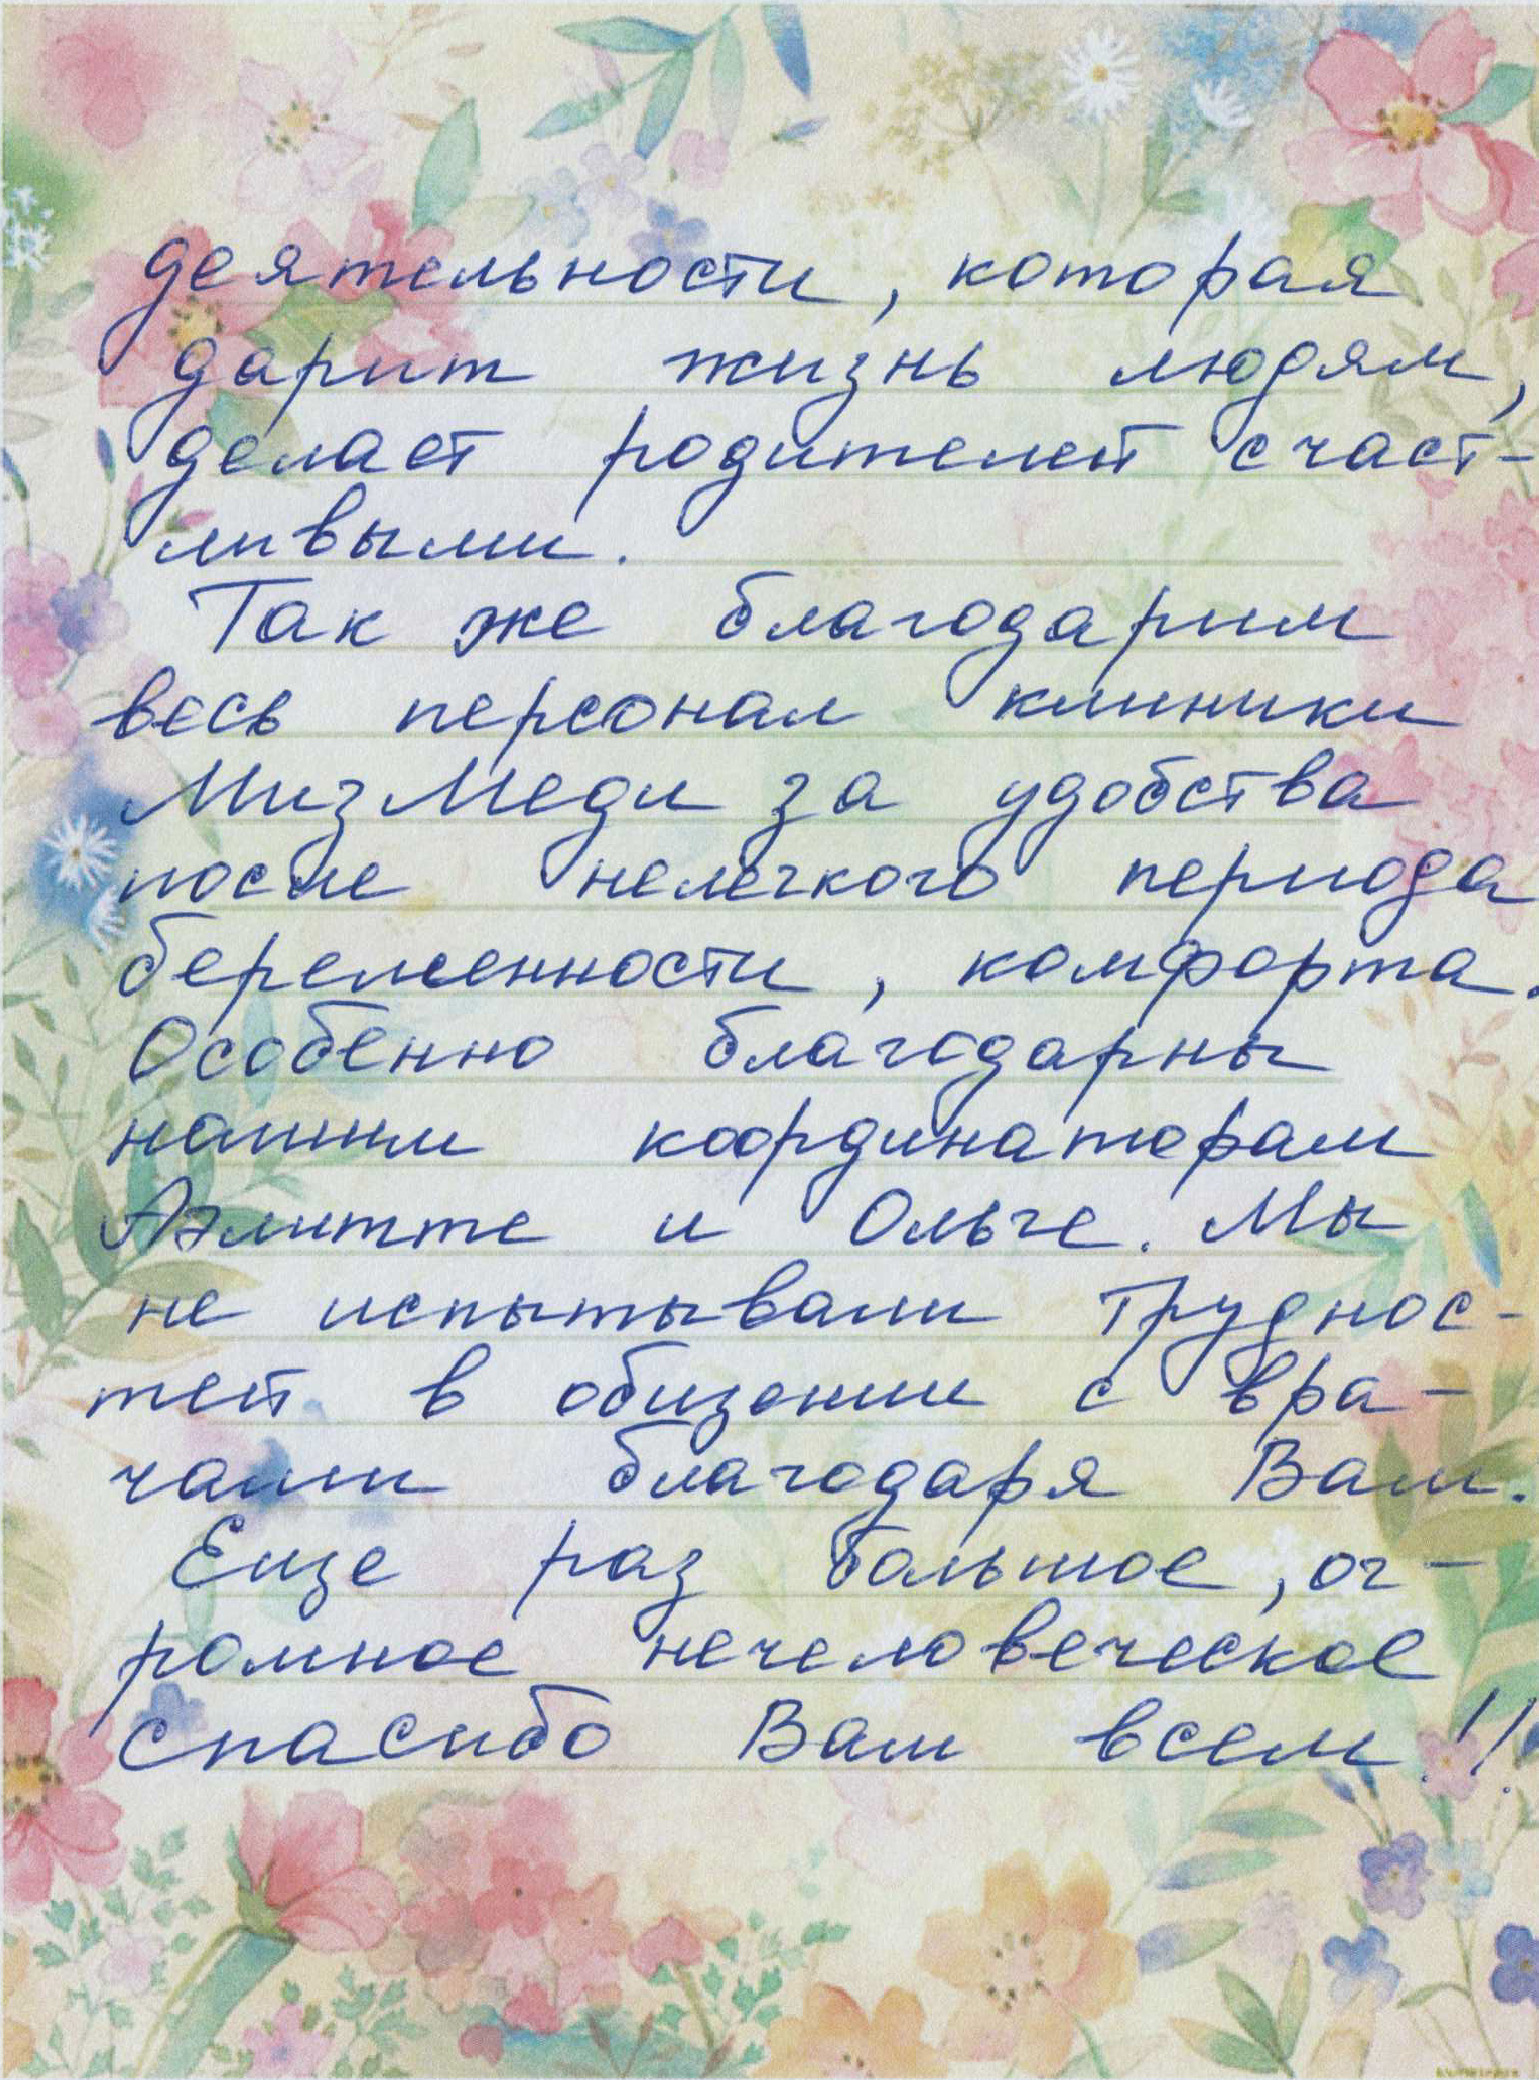 деятельности, которая
дарит жизнь людям,
делает родителей счаст-
ливыми.
Так же благодарим
весь персонал клиники
МизМеди за удобства
после нелегкого периода
беременности, комфорта.
Особенно благодарны
нашим координаторам
Аэлитте и Ольге. Мы
не испытывали труднос-
тей в общении с вра-
чами благодаря Вам.
Еще раз большое, ог-
ромное нечеловеческое
спасибо Вам всем!!